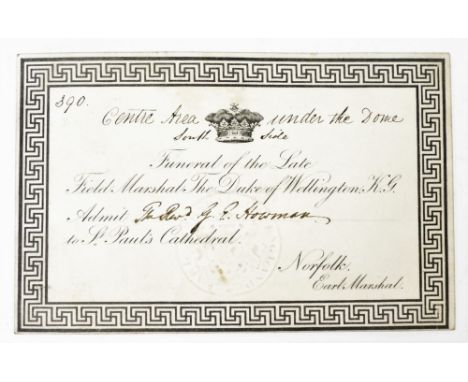 390.
Centre Area under the Dome
South Side
Funeral of the Late
Field Marshal The Duke of Wellington, K.G.
Admit The Revd. G. E. Howman
to St. Paul's Cathedral.
Norfolk.
Earl Marshal.